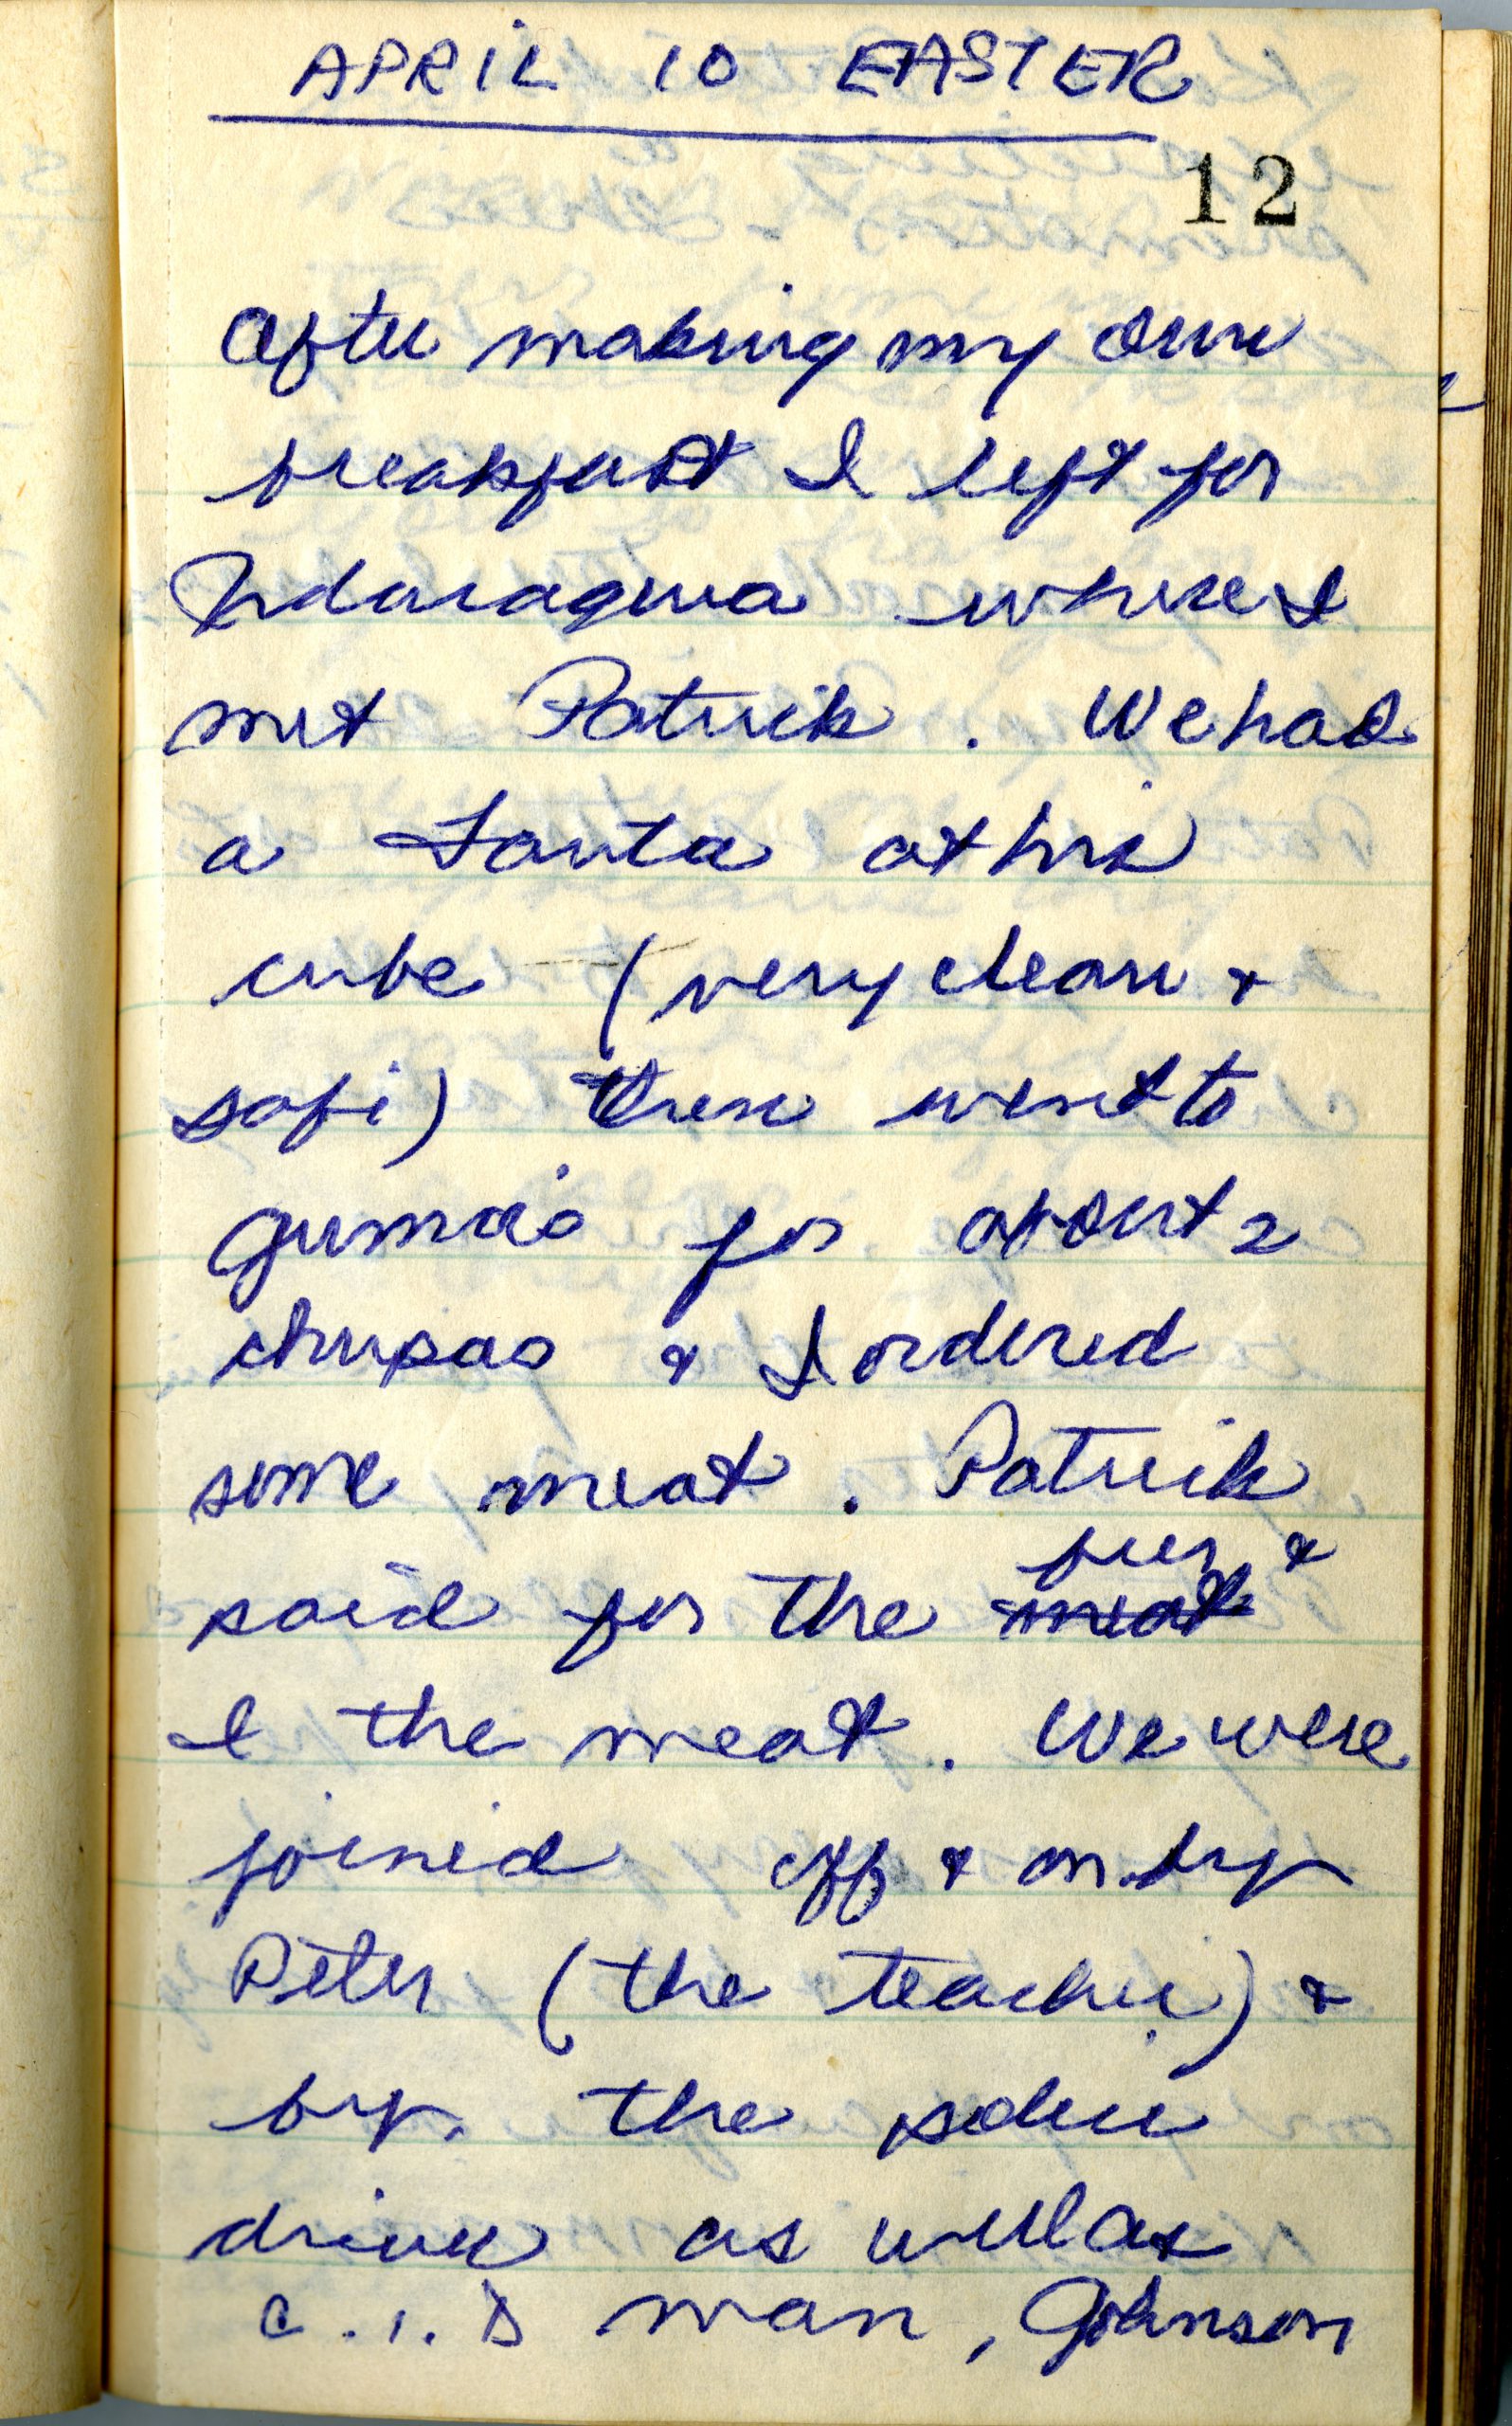 APRIL 10 EASTER
12
After making my own
breakfast I left for
Ndaragwa where I
met Patrick. We had
a Fanta at his
cube (very clean &
safi) then went to
Guma's for about 2
chupas & I ordered
some meat. Patrick
beer &
paid for the meat
I the meat. We were
joined off & on by
Peter (the teacher) &
by the police
driver as well as
C.I.D man, Johnson